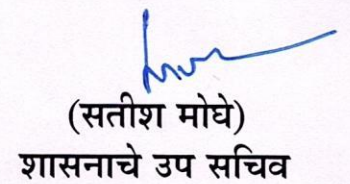 (सतीश मोघे)
शासनाचे उप सचिव